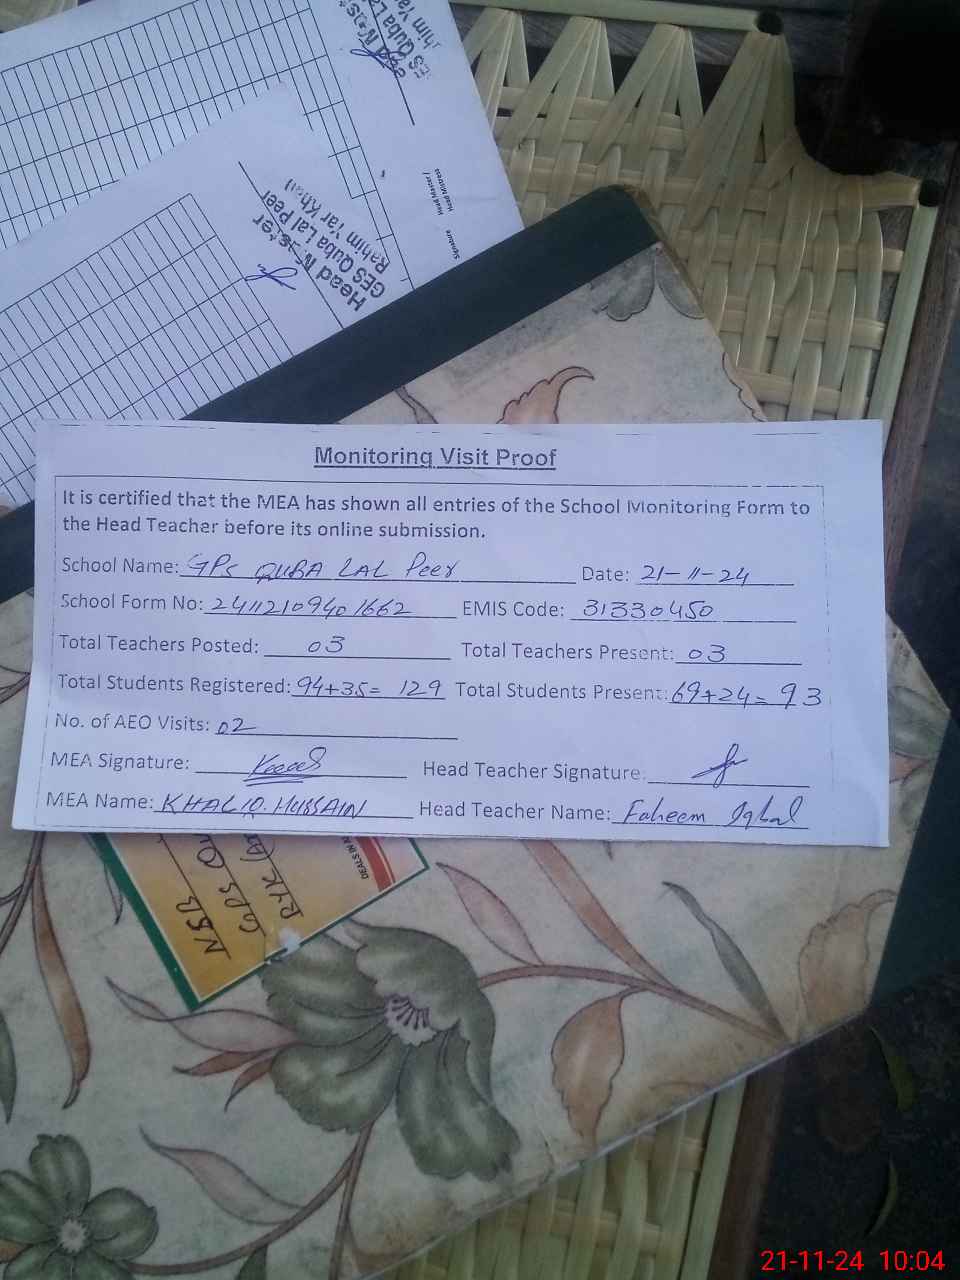 Head Master /
Head Mistress
Signature
Head Master
GES Quba Lal Peer
Rahim Yar Khan
Monitoring Visit Proof
It is certified that the MEA has shown all entries of the School Monitoring Form to
the Head Teacher before its online submission.
School Name: GPS QUBA LAL Peer Date: 21-11-24
School Form No: 24112109401662 EMIS Code: 31330450
Total Teachers Posted: 03 Total Teachers Present: 03
Total Students Registered: 94+35= 129 Total Students Present: 69+24= 93
No. of AEO Visits: 02
MEA Signature: Head Teacher Signature:
MEA Name: KHALIQ. HUSSAIN Head Teacher Name: Faheem Iqbal
DEALS IN
NSB
GPS
RYK
21-11-24 10:04